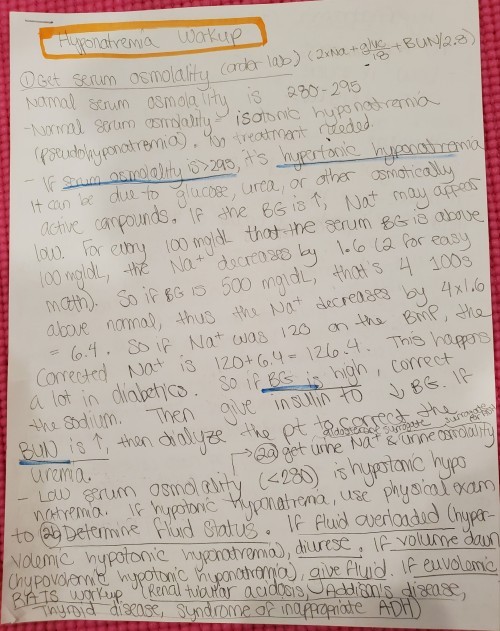 Hyponatremia Workup
① Get serum osmolality (order lab) (2xNa + gluc/18 + BUN/2.8)
Normal serum osmolality is 280-295
- Normal serum osmolality → isotonic hyponatremia
(pseudohyponatremia). No treatment needed.
- If serum osmolality is >295, it's hypertonic hyponatremia
It can be due to glucose, urea, or other osmotically
active compounds. If the BG is ↑, Na+ may appear
low. For every 100 mg/dL that the serum BG is above
100 mg/dL, the Na+ decreases by 1.6 (2 for easy
math). So if BG is 500 mg/dL, that's 4 100s
above normal, thus the Na+ decreases by 4x1.6
= 6.4. So if Na+ was 120 on the BMP, the
corrected Na+ is 120+6.4 = 126.4. This happens
a lot in diabetics. So if BG is high, correct
the sodium. Then give insulin to ↓ BG. If
BUN is ↑, then dialyze the pt to correct the
uremia. → 2a get urine Na+ & urine osmolality
- Low serum osmolality (<280) is hypotonic hypo
natremia. If hypotonic hyponatremia, use physical exam
to 2b Determine fluid status. If fluid overloaded (hyper-
volemic hypotonic hyponatremia), diurese. If volume down
(hypovolemic hypotonic hyponatremia), give fluid. If euvolemic
RATS workup (Renal tubular acidosis, Addison's disease,
Thyroid disease, syndrome of inappropriate ADH)